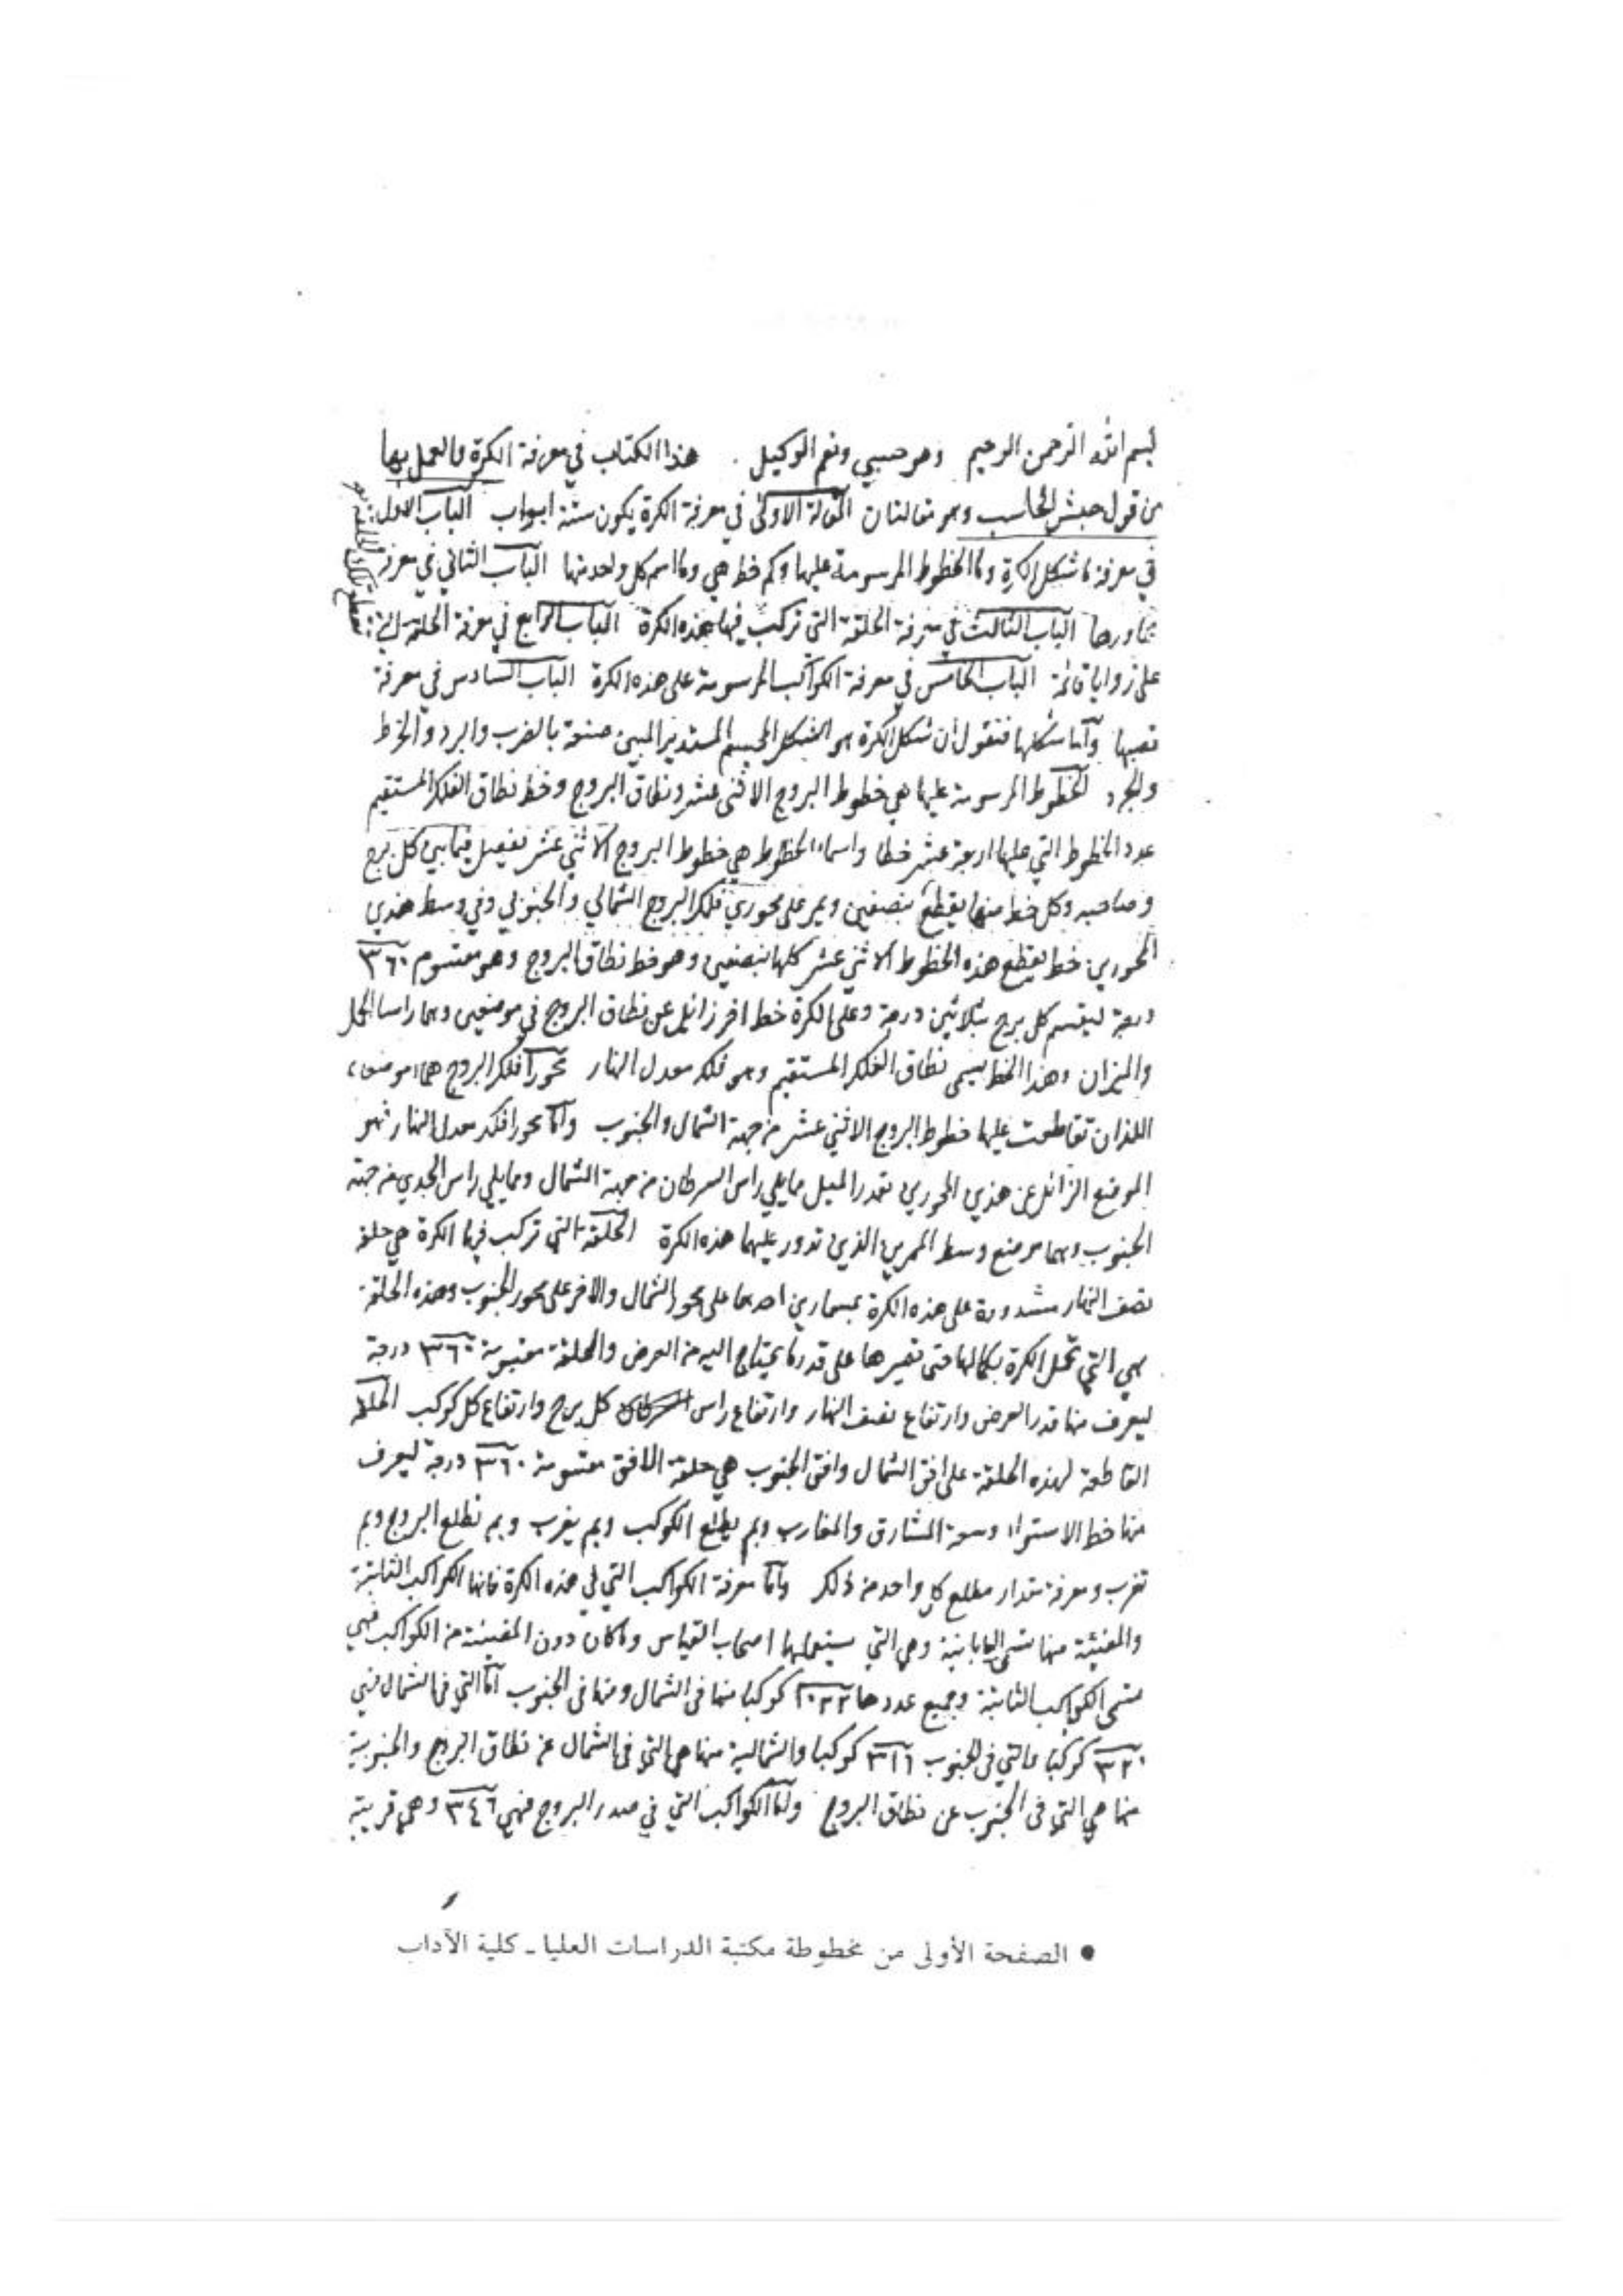 بسم الله الرحمن الرحيم وهو حسبي ونعم الوكيل . هذا الكتاب في معرفة الكرة والعمل بها
من قول حبش الحاسب وهو مقالتان المقالة الاولى في معرفة الكرة يكون ستة ابواب الباب الاول
في معرفة ما شكل الكرة وما الخطوط المرسومة عليها وكم خط هي وما اسم كل واحد منها الباب الثاني في معرفة
محاورها الباب الثالث في معرفة الحلقة التي تركب فيها هذه الكرة الباب الرابع في معرفة الحلقة التي
تقطع تلك الحلقة
على زوايا قائمة الباب الخامس في معرفة الكواكب المرسومة على هذه الكرة الباب السادس في معرفة
نصبها واما شكلها فنقول ان شكل الكرة هو الشكل المجسم المستدير صنعة بالضرب والبرد والخرط
والجرد الخطوط المرسومة عليها هي خطوط البروج الاثنى عشر ونطاق البروج وخط نطاق الفلك المستقيم
عدد الخطوط التي عليها اربعة عشر خطا واسماء الخطوط هي خطوط البروج الاثني عشر تفصيل فيما بين كل برج
وصاحبه وكل خط منها يقطع بنصفين ويمر على محوري فلك البروج الشمالي والجنوبي وفي وسط هذي
المحورين خط يقطع هذه الخطوط الاثني عشر كلها بنصفين وهو خط نطاق البروج وهو مقسوم ٣٦٠
درجة ليقسم كل برج بثلاثين درجة وعلى الكرة خط اخر زايل عن نطاق البروج في موضعين وهما راسا الحمل
والميزان وهذا الخط يسمى نطاق الفلك المستقيم وهو فلك معدل النهار محورا فلك البروج هما موضعا
اللذان تقاطعت عليها خطوط البروج الاثني عشر من جهة الشمال والجنوب واما محورا فلك معدل النهار فهو
الموضع الزائل عن هذي المحورين بقدر الميل مما يلي راس السرطان من جهة الشمال ومما يلي راس الجدي من جهة
الجنوب وهما موضع وسط الذين تدور عليهما هذه الكرة الحلقة التي تركب فيها الكرة هي حلقة
نصف النهار مشدودة على هذه الكرة بمسمارين احدهما على محور الشمال والاخر على محور الجنوب وهذه الحلقة
هي التي تحمل الكرة بكمالها حتى تصيرها على قدر ما يحتاج اليه من العرض والحلقة مقسومة ٣٦٠ درجة
ليعرف منها قدر العرض وارتفاع نصف النهار وارتفاع راس كل برج وارتفاع كل كوكب الحلقة
القاطعة لهذه الحلقة على افق الشمال وافق الجنوب هي حلقة الافق مقسومة ٣٦٠ درجة ليعرف
منها خط الاستواء وسعة المشارق والمغارب وبم يطلع الكوكب وبم يغرب وبم تطلع البروج وبم
تغرب ومعرفة مقدار مطلع كل واحد من ذلك واما معرفة الكواكب التي في هذه الكرة فانها الكواكب الثابتة
والمضيئة منها تسمى البابانية وهي التي يستعملها اصحاب القياس وما كان دون المضيئة من الكواكب فهي
تسمى الكواكب الثابتة وجميع عددها ١٠٢٢ كوكبا منها في الشمال ومنها في الجنوب اما التي في الشمال فهي
٣٦٠ كوكبا والتي في الجنوب ٣١٦ كوكبا والشمالية منها هي التي في الشمال عن نطاق البروج والجنوبية
منها هي التي في الجنوب عن نطاق البروج واما الكواكب التي في صدر البروج فهي ٣٤٦ وهي قريبة
● الصفحة الأولى من مخطوطة مكتبة الدراسات العليا - كلية الآداب